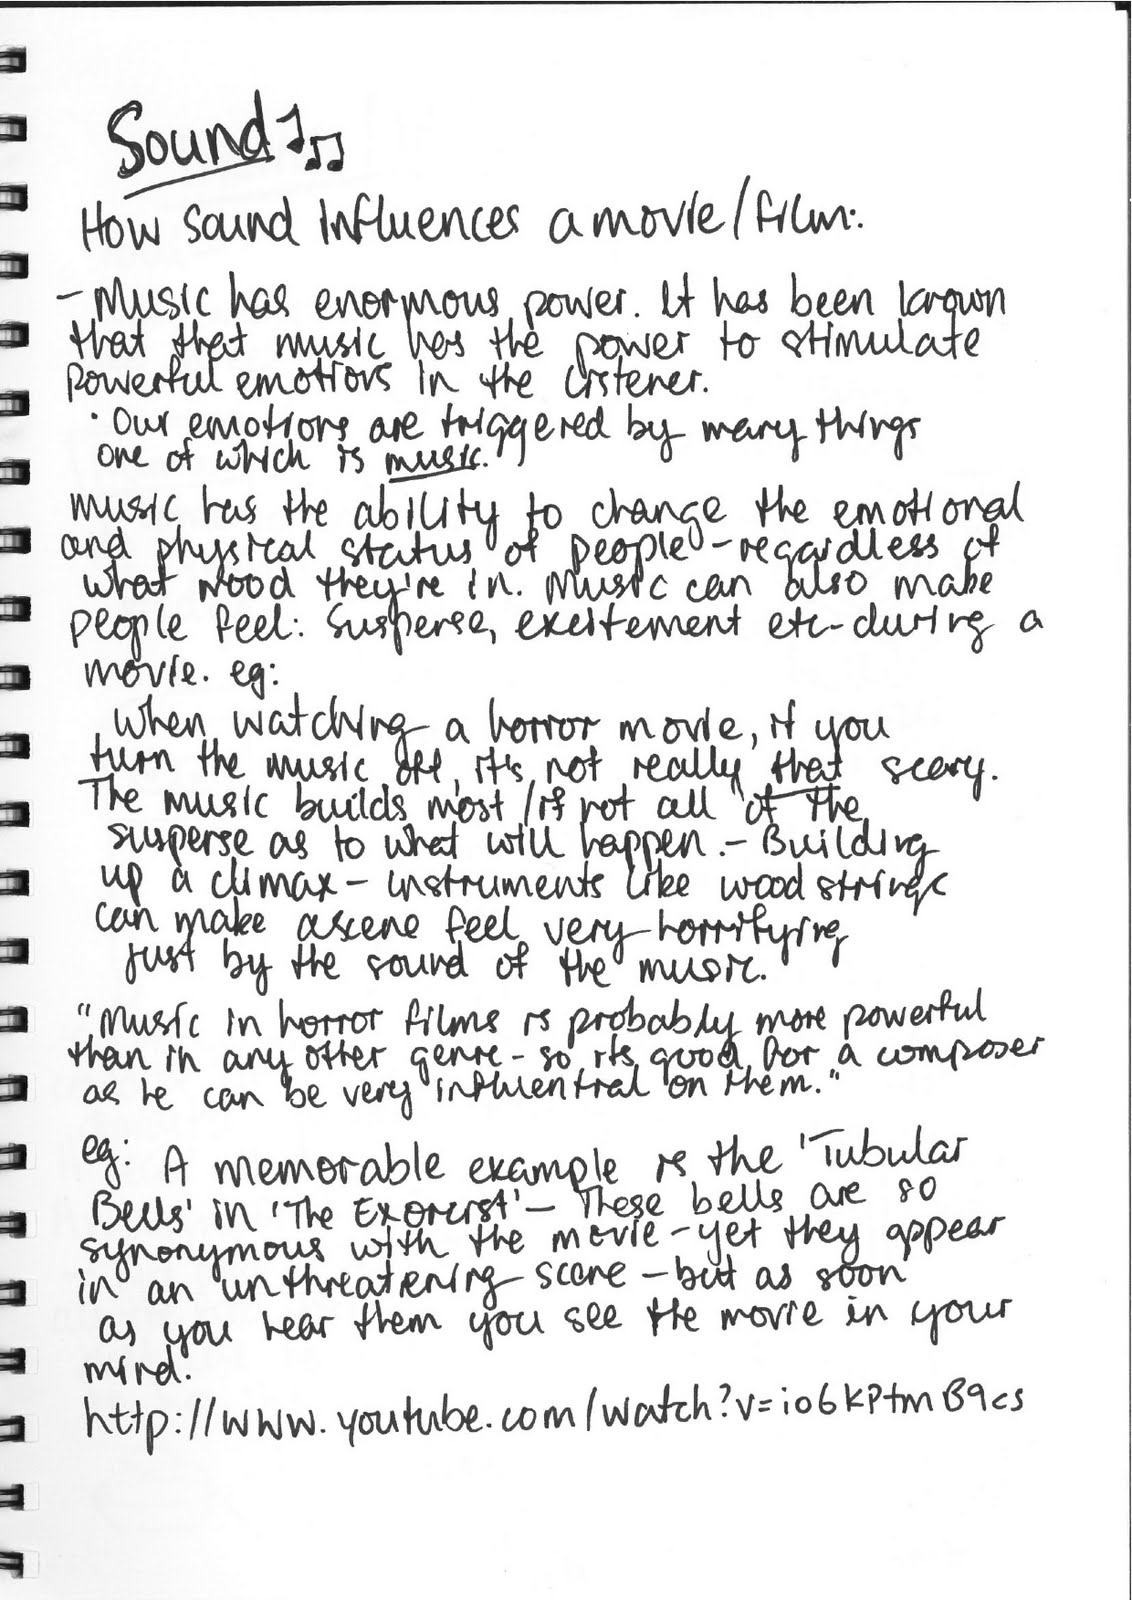 Sound
How sound influences a movie/film:
- Music has enormous power. It has been known
that that music has the power to stimulate
powerful emotions in the listener.
• Our emotions are triggered by many things
one of which is music.
music has the ability to change the emotional
and physical status of people - regardless of
what mood they're in. Music can also make
people feel: Suspense, exeitement etc - during a
movie. eg:
when watching a horror movie, if you
turn the music off, it's not really that scary.
The music builds most/if not all of the
suspense as to what will happen. - Building
up a climax - instruments like wood strings
can make a scene feel very horrifying
just by the sound of the music.
"Music in horror films is probably more powerful
than in any other genre - so its good for a composer
as he can be very influential on them."
eg: A memorable example is the 'Tubular
Bells' in 'The Exorcist' - These bells are so
synonymous with the movie - yet they appear
in an unthreatening scene - but as soon
as you hear them you see the movie in your
mind.
http://www.youtube.com/watch?v=io6KPtmB9cs